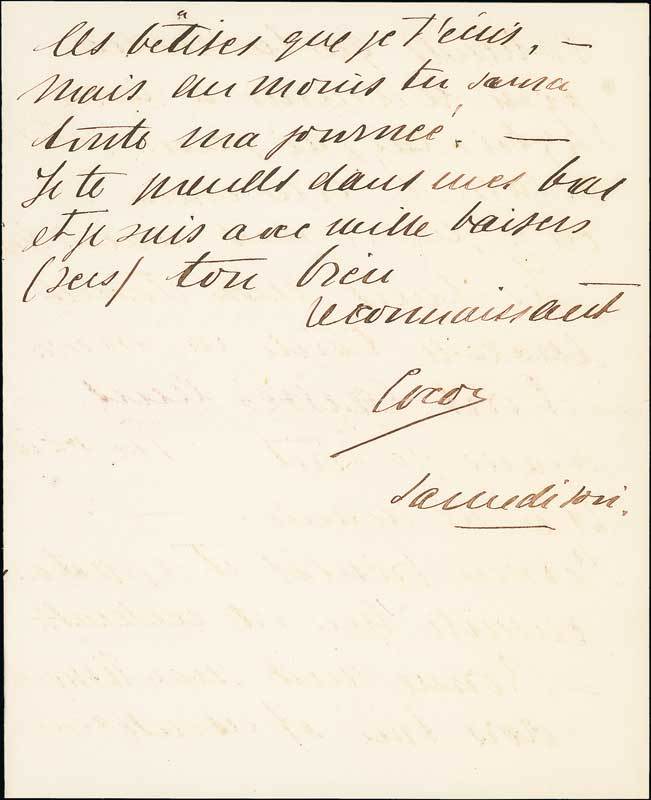 les bêtises que je t'écris, —
mais au moins tu saura
toute ma journée. —
Je te prends dans mes bras
et je suis avec mille baisers
(secs) ton bien
reconnaissant
Coco
samedi soir.